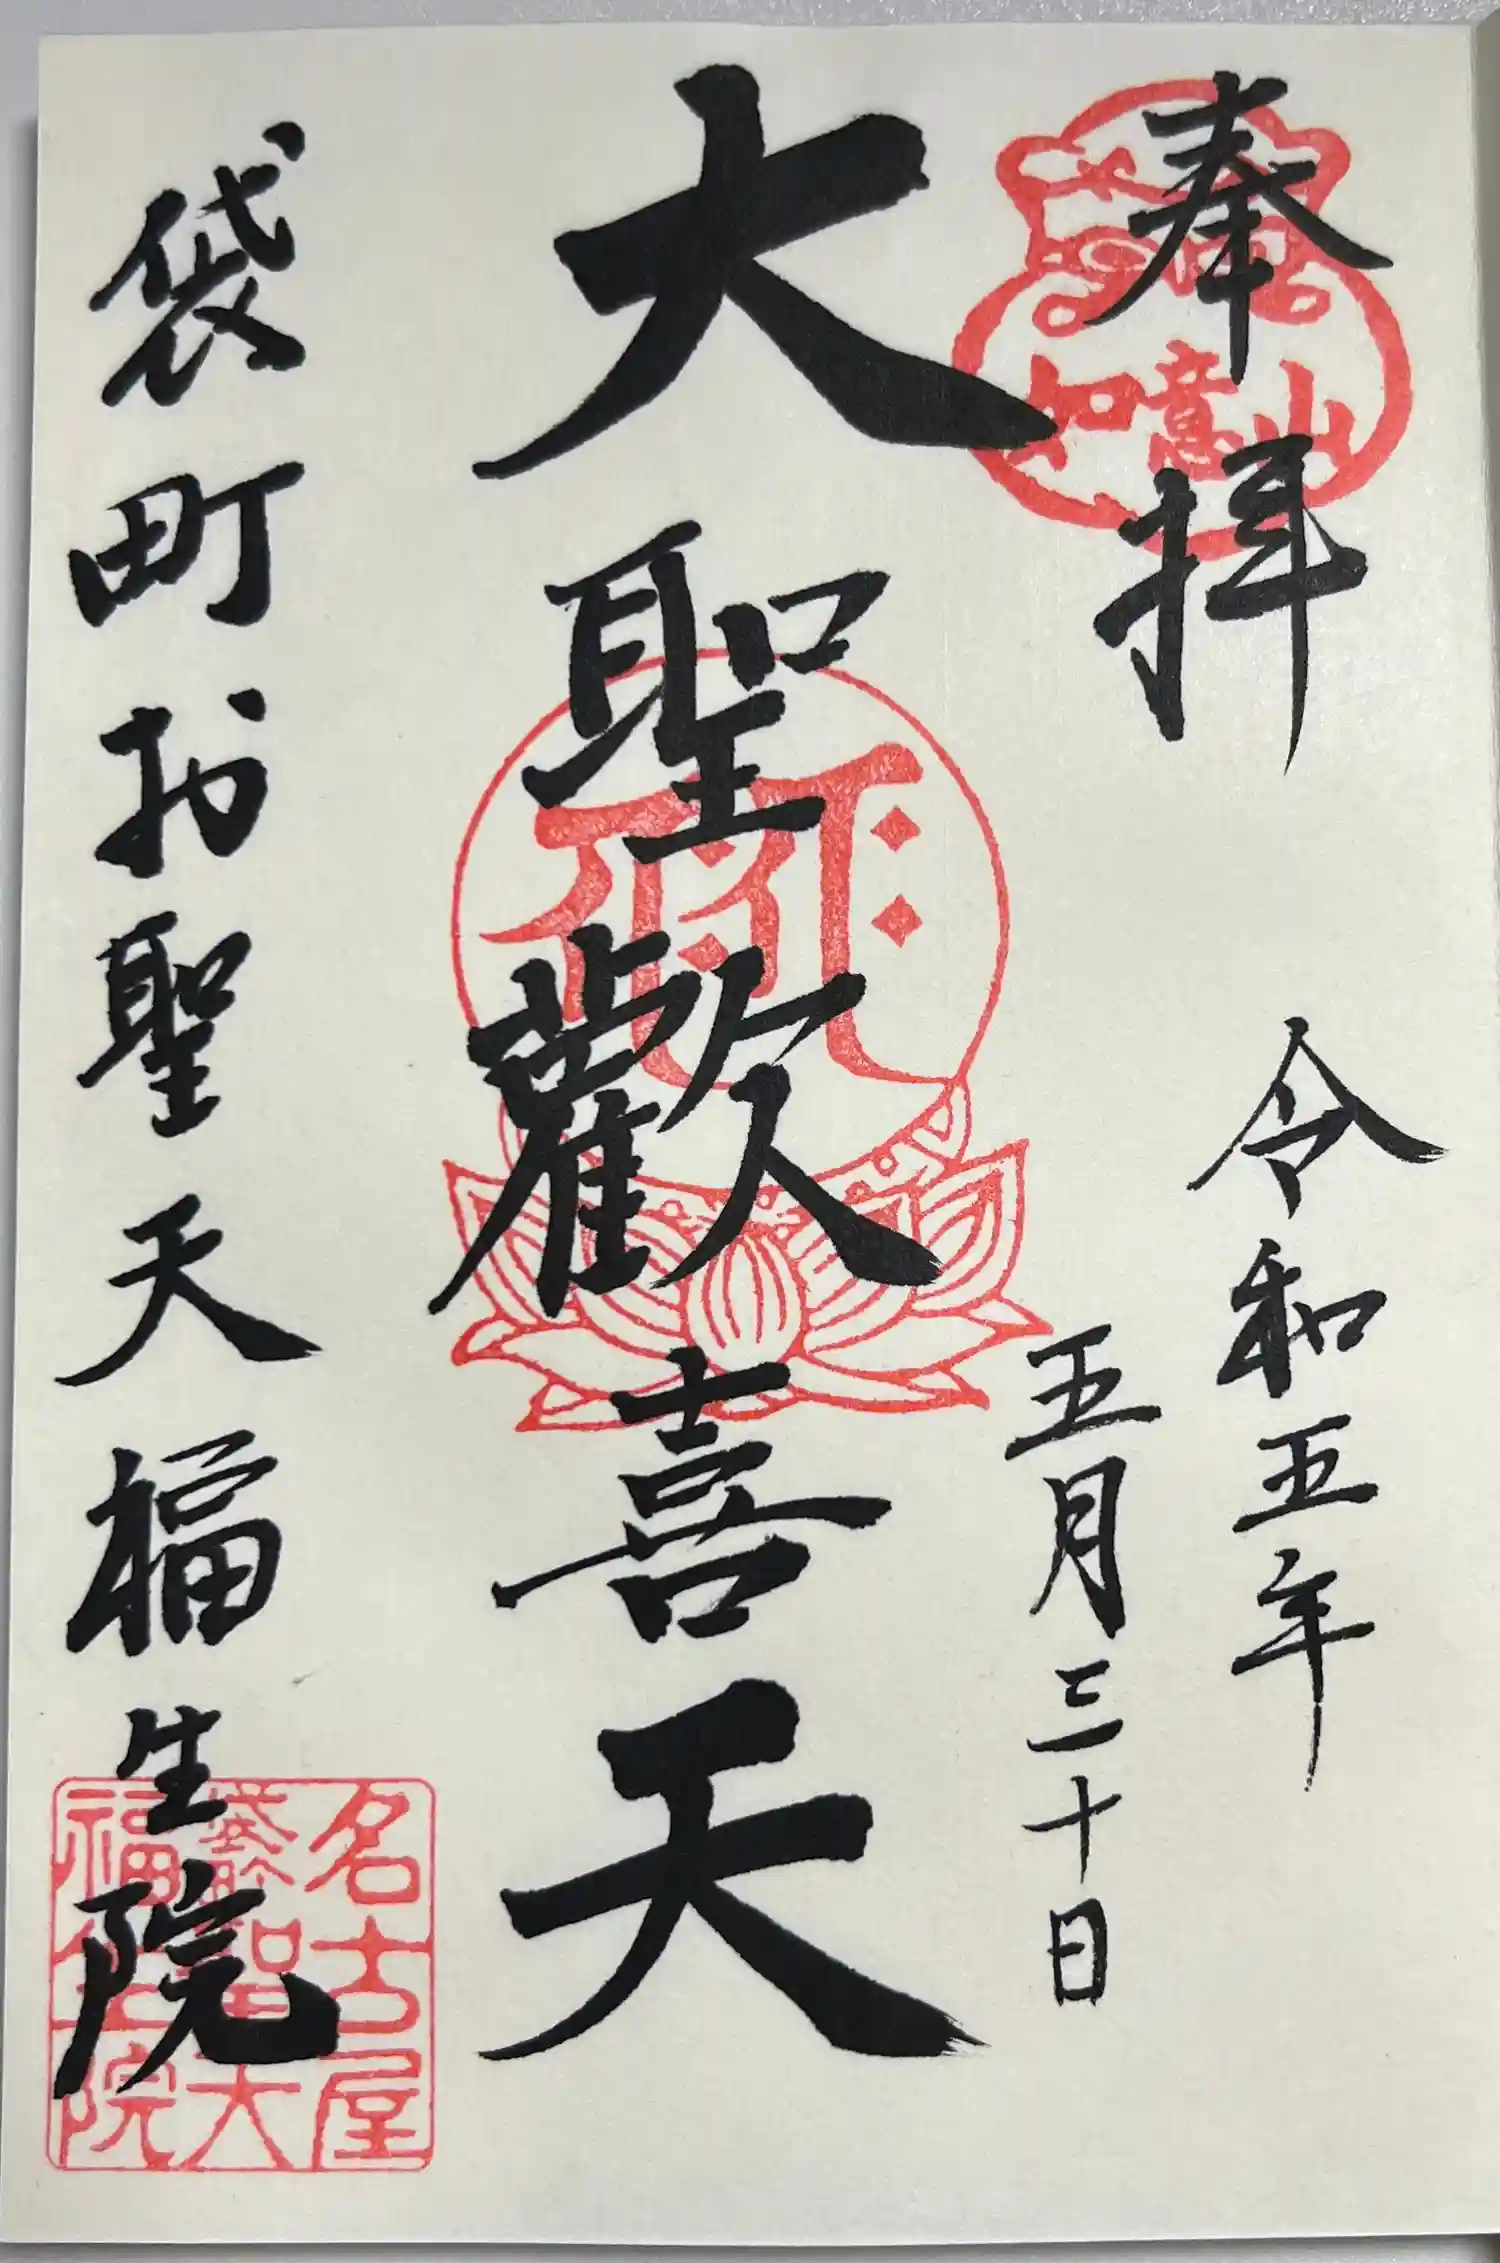 奉拝
如意山
令和五年
五月三十日
大聖歡喜天
袋町お聖天福生院
名古屋
袋町聖天
福生院